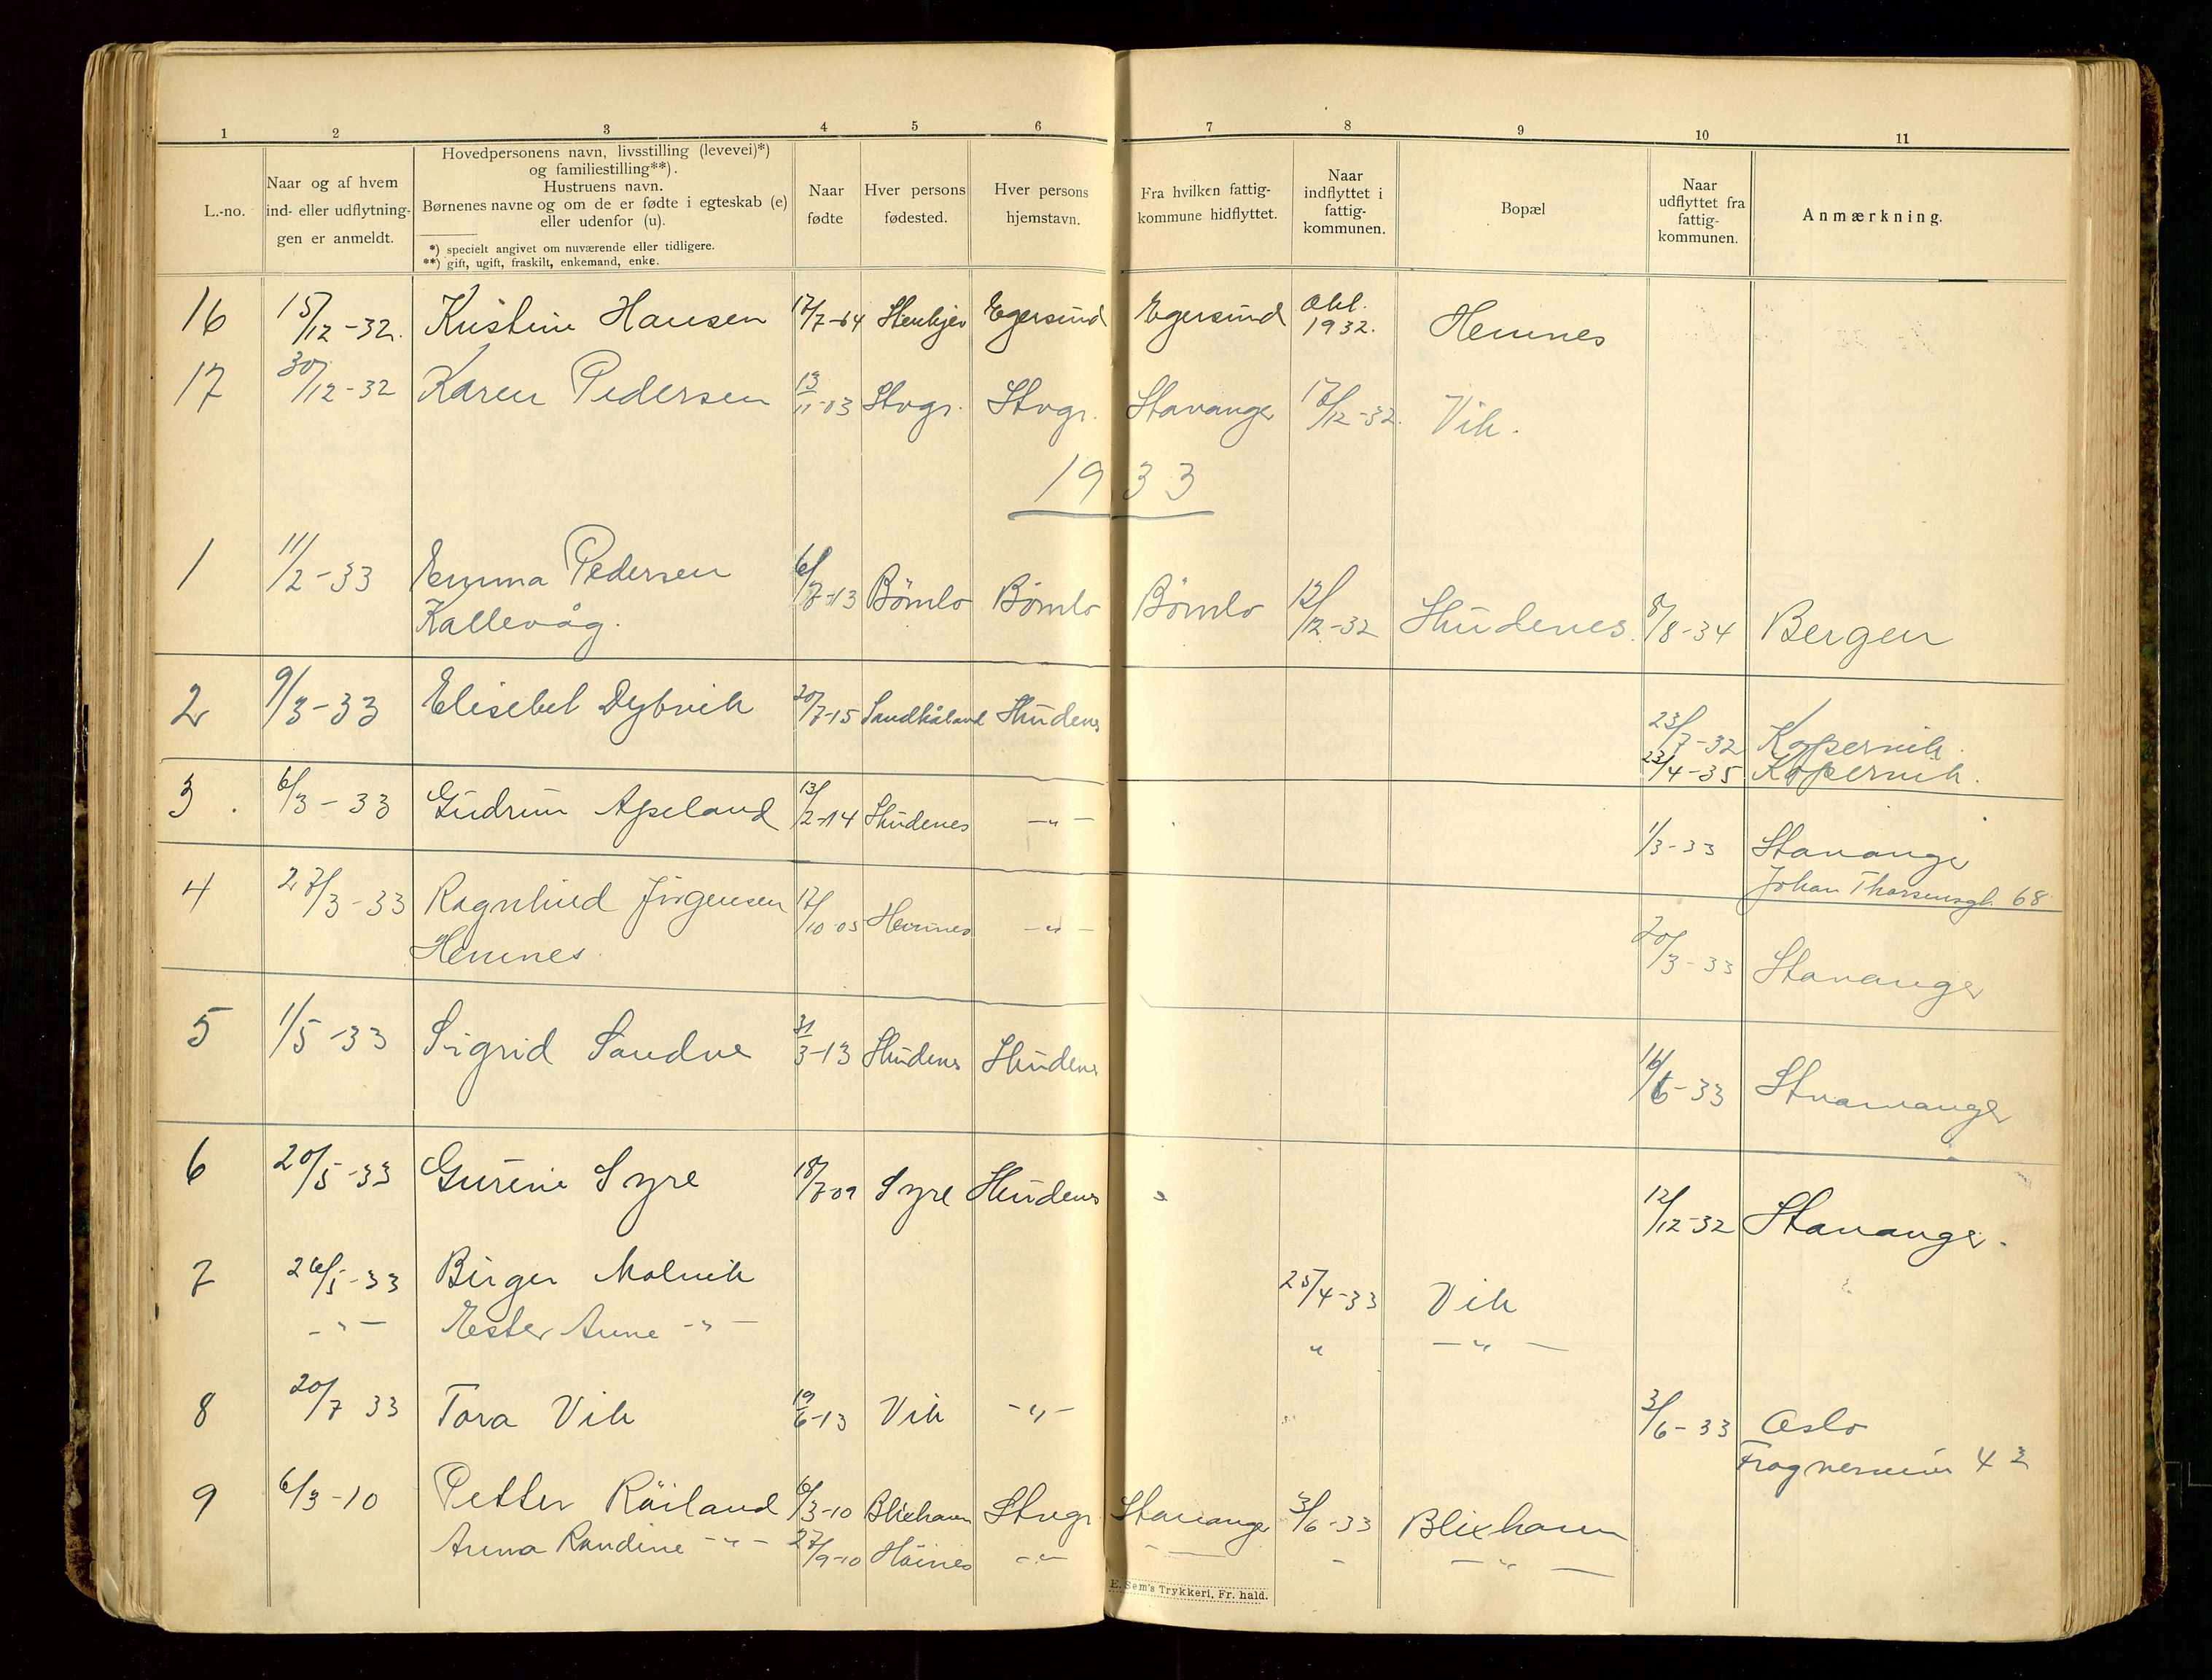 1 2 3 4 5 6 7 8 9 10 11
L.-no.
Naar og af hvem
ind- eller udflytnin-
gen er anmeldt.
Hovedpersonens navn, livsstilling (levevei)*)
og familiestilling**).
Hustruens navn.
Børnenes navne og om de er fødte i egteskab (e)
eller udenfor (u).
*) specielt angivet om nuværende eller tidligere.
**) gift, ugift, fraskilt, enkemand, enke.
Naar
fødte
Hver persons
fødested.
Hver persons
hjemstavn.
Fra hvilken fattig-
kommune hidflyttet.
Naar
indflyttet i
fattig-
kommunen.
Bopæl
Naar
udflyttet fra
fattig-
kommunen.
Anmærkning.
16 15/12-32. Kristine Hansen 17/7-64 Egersund Egersund Okt. 1932. Hemnes
17 30/12-32 Karen Pedersen 13/11-03 Stvgr. Stvgr. Stavanger 17/12-32. Vik.
1933
1 11/2-33 Emma Pedersen 6/7-13 Bömlo Bömlo Bömlo 12/12-32 Skudenes. 8/8-34 Bergen
Kallevåg.
2 9/3-33 Elisebet Dybvik 20/7-15 Sandhåland Skudenes 23/7-32 Kopervik.
23/4-35 Kopervik.
3. 6/3-33 Gudrun Apeland 13/2-14 Skudenes -"- 1/3-33 Stavanger
Johan Thorsensgt. 68
4 27/3-33 Ragnhild Jörgensen 17/10-05 Hemnes -"- 20/3-33 Stavanger
Hemnes
5 1/5-33 Sigrid Sandve 31/3-13 Skudenes Skudenes 16/6-33 Stvavanger
6 20/5-33 Gurine Syre 18/7-09 Syre Skudenes 12/12-32 Stavanger.
7 26/5-33 Birger Molvik 25/4-33 Vik
-"- Ester Anne -"- " -"-
8 20/7 33 Tora Vik 19/6-13 Vik -"- 3/6-33 Oslo
Frognerveien 42
9 6/3-10 Petter Röiland 6/3-10 Blikhavn Stvgr Stavanger 3/6-33 Blixhavn
Anna Randine -"- 27/9-10 Höines -"- - - -"-
E. Sem's Trykkeri, Fr. hald.